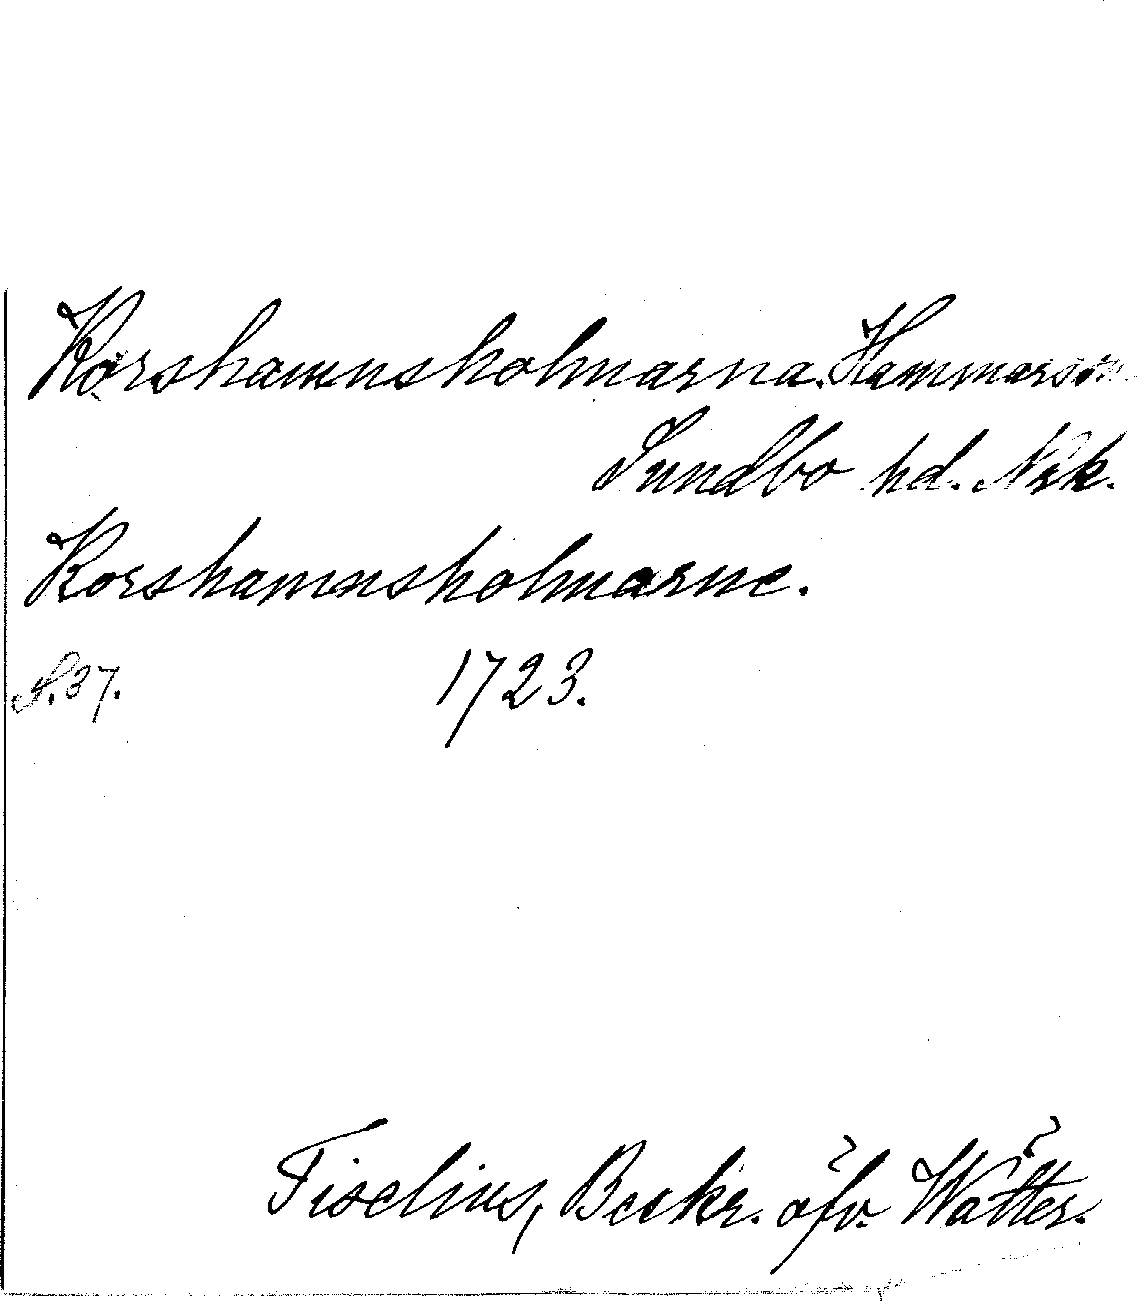 Korshamnsholmarna. Hammars sn
Sundbo hd. Nrk.
Korshamnsholmarne.
S. 37. 1723.
Tiselius, Beskr. öfv. Wätter.